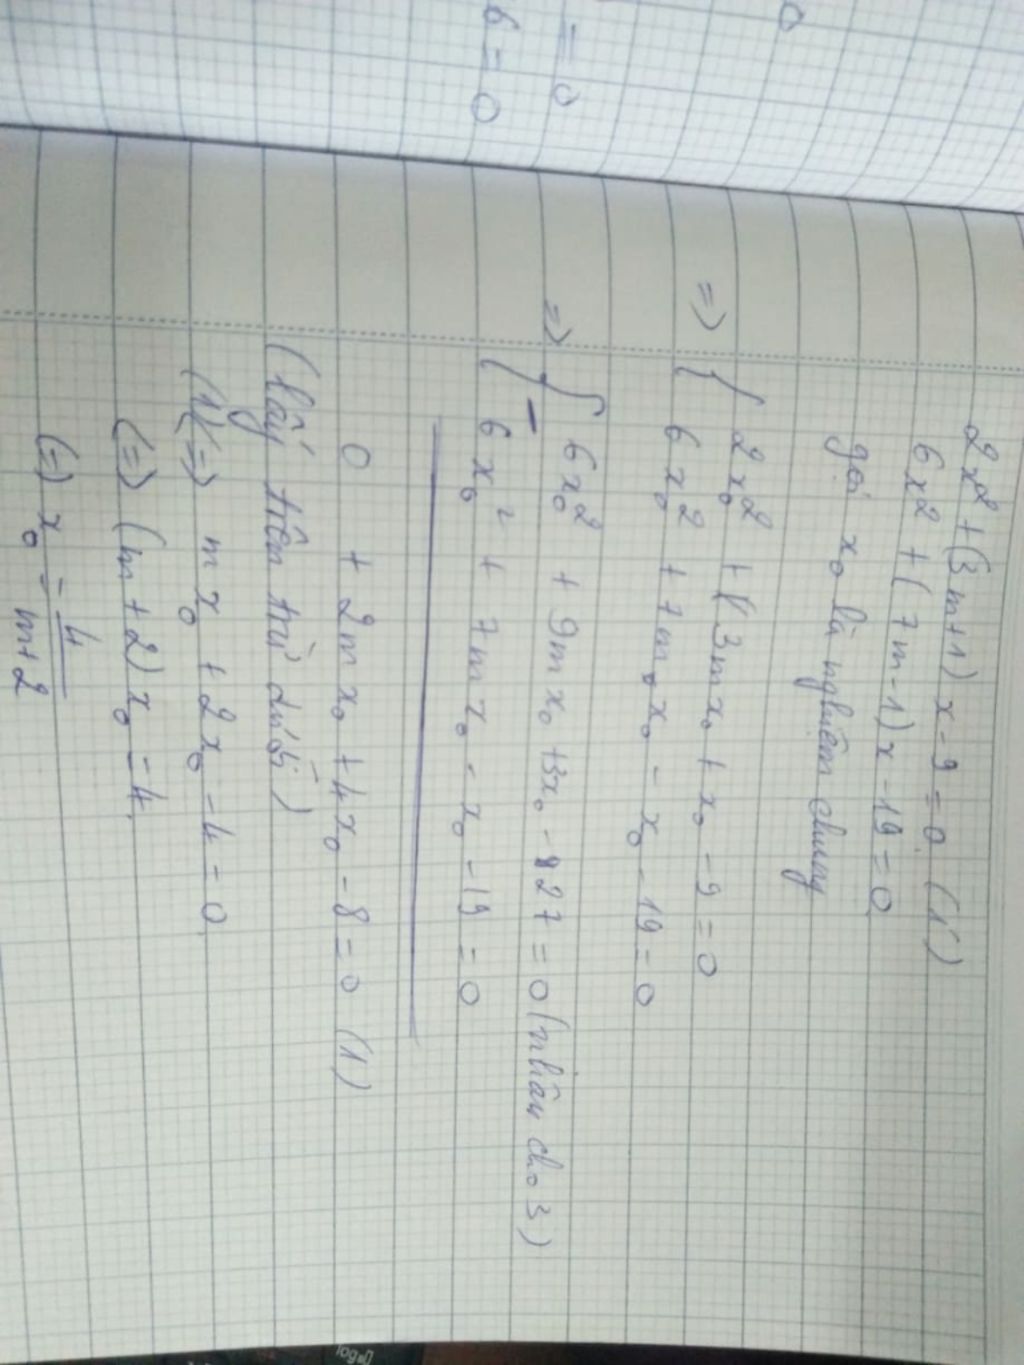 = 0
6 = 0
2x² + (3m+1)x - 9 = 0 (1')
6x² + (7m-1)x - 19 = 0
gọi x₀ là nghiệm chung
=> { 2x₀² + (3mx₀ + x₀ - 9 = 0
6x₀² + 7m₀x₀ - x₀ - 19 = 0
=> { 6x₀² + 9mx₀ + 3x₀ - 27 = 0 (nhân cho 3)
- 6x₀² + 7mx₀ - x₀ - 19 = 0
0 + 2mx₀ + 4x₀ - 8 = 0 (1)
(lấy trên trừ dưới)
(1) (=) mx₀ + 2x₀ - 4 = 0
(=) (m+2)x₀ = 4
(=) x₀ = 4/m+2